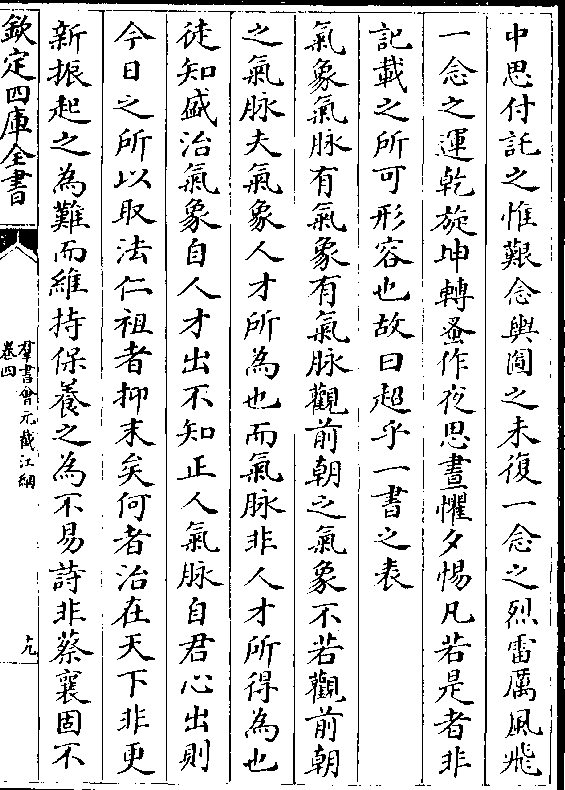 中思付託之惟艱念輿圖之未復一念之烈雷厲風飛
一念之運乾旋坤轉蚤作夜思晝懼夕惕凡若是者非
記載之所可形容也故曰超乎一書之表
氣象氣脉有氣象有氣脉觀前朝之氣象不若觀前朝
之氣脉夫氣象人才所為也而氣脉非人才所得為也
徒知盛治氣象自人才出不知正人氣脉自君心出則
今日之所以取法仁祖者抑末矣何者治在天下非更
新振起之為難而維持保養之為不易詩非蔡襄固不
欽定四庫全書
羣書會元截江網
卷四
十九